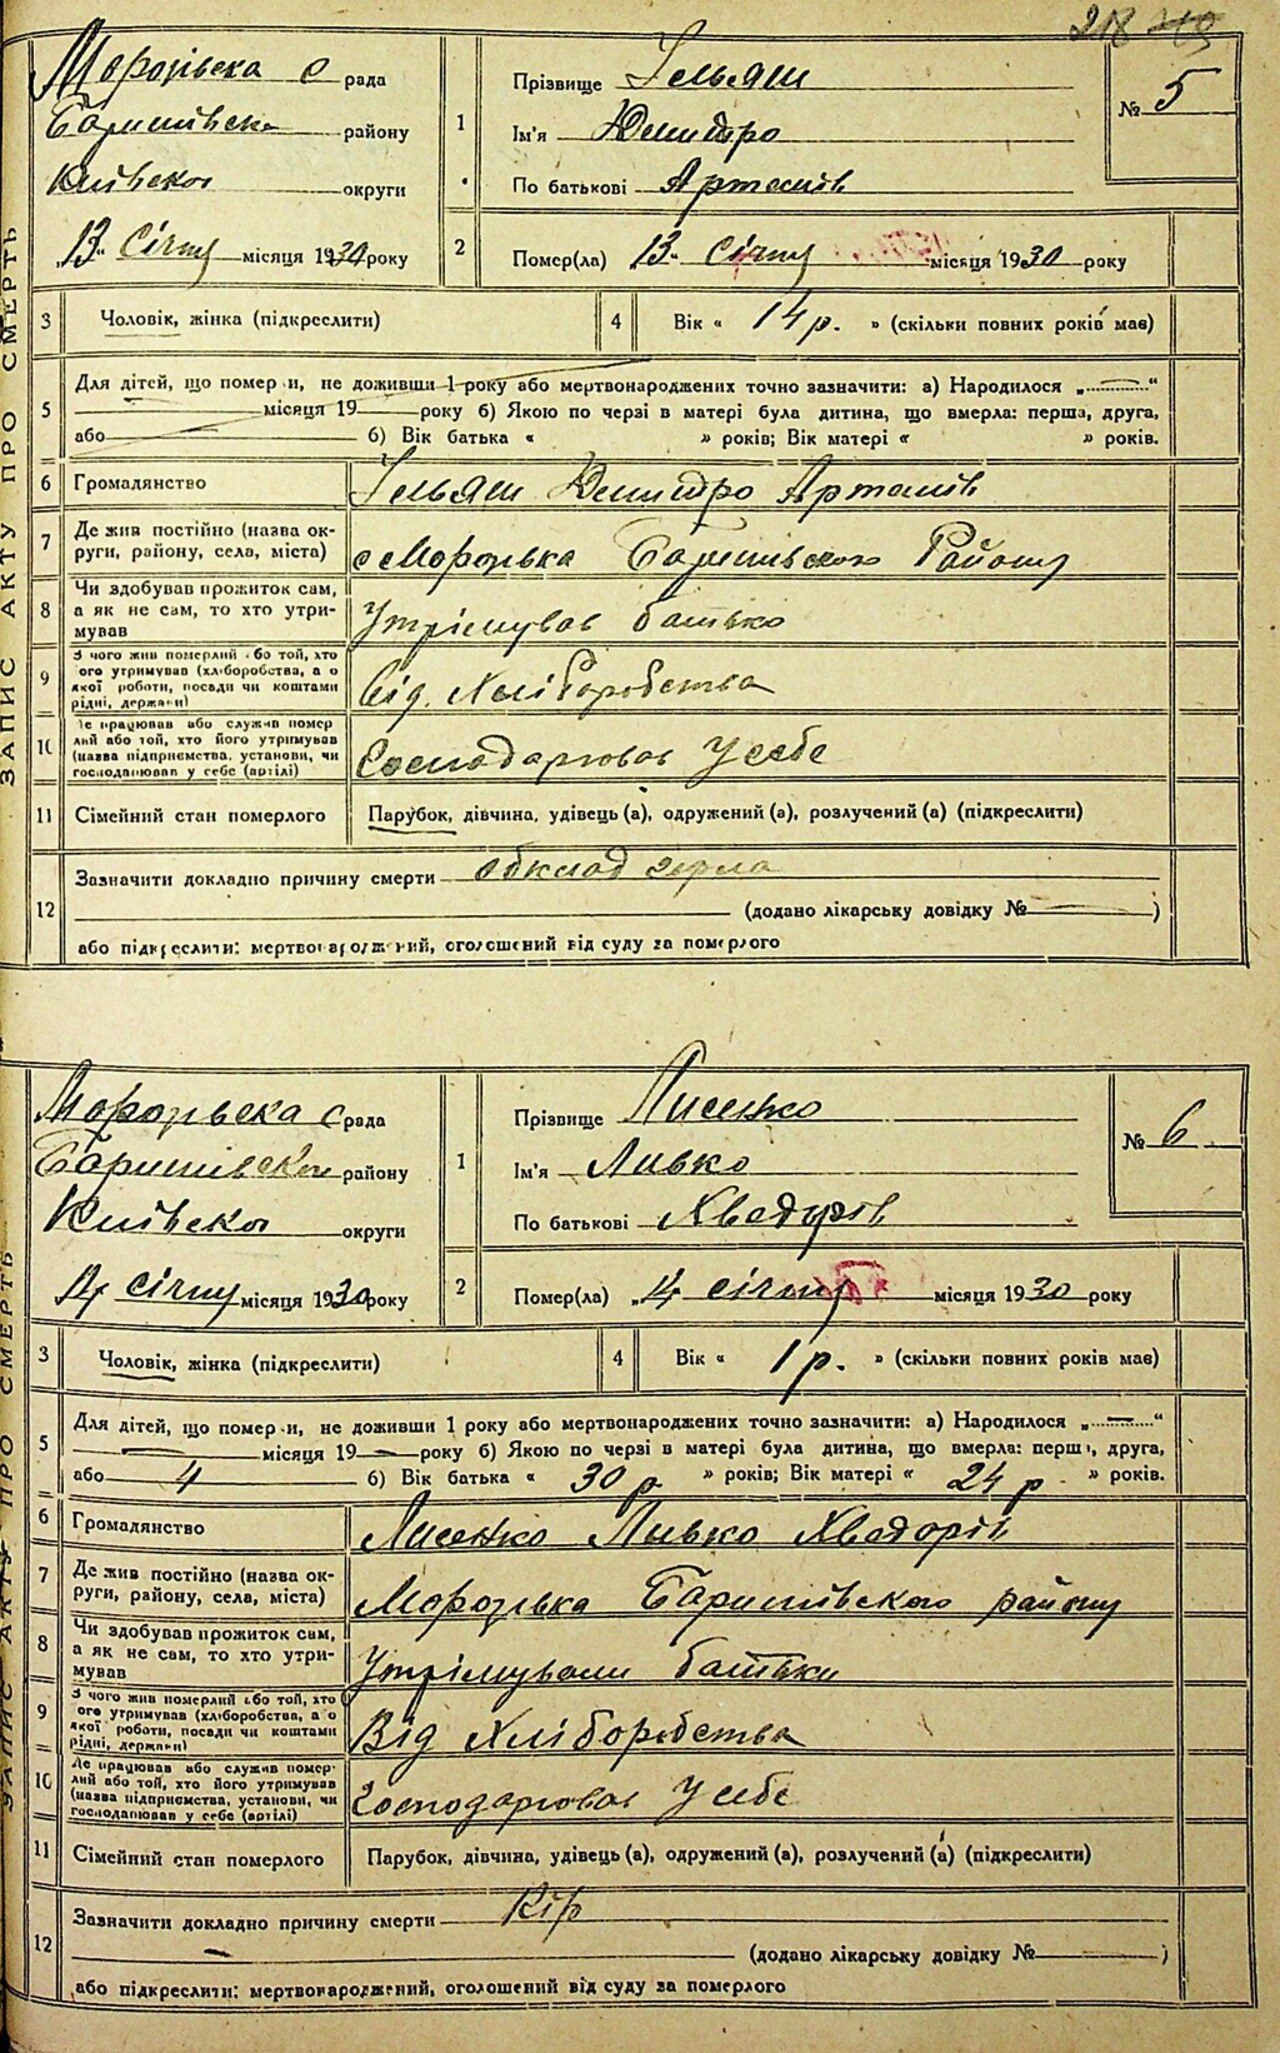 218
Морозівска с рада
Баришівска району
Київскоі округи
„13“ Січня місяця 1930 року
1
Прізвище Гельяш
Ім'я Дмитро
По батькові Артемів
№ 5
2
Помер(ла) „13“ Січня місяця 1930 року
3 Чоловік, жінка (підкреслити)
4 Вік « 14 р. » (скільки повних років має)
5
Для дітей, що помер и, не доживши 1 року або мертвонароджених точно зазначити: а) Народилося „ — “
місяця 19 року б) Якою по черзі в матері була дитина, що вмерла: перша, друга,
або б) Вік батька « » років; Вік матері « » років.
6 Громадянство Гельяш Дмитро Артемів
7 Де жив постійно (назва ок-
руги, району, села, міста) с Морозівка Баришівского Району
8 Чи здобував прожиток сам,
а як не сам, то хто утри-
мував Утрімував батько
9 З чого жив померлий або той, хто
ого утримував (хліборобства, а о
якої роботи, посади чи коштами
рідні, держави) Від Хліборобства
10 Де працював або служив помер
лий або той, хто його утримував
(назва підприємства, установи, чи
господарював у себе (артілі) Господарював У себе
11 Сімейний стан померлого Парубок, дівчина, удівець (а), одружений (а), розлучений (а) (підкреслити)
12
Зазначити докладно причину смерти обклад горла
(додано лікарську довідку № — )
або підкреслити: мертвонароджений, оголошений від суду за померлого
ЗАПИС АКТУ ПРО СМЕРТЬ
Морозівска с рада
Баришівскоі району
Київскоі округи
14 січня місяця 1930 року
1
Прізвище Лисенко
Ім'я Ливко
По батькові Хведорів
№ 6
2
Помер(ла) „14 січня місяця 1930 року
3 Чоловік, жінка (підкреслити)
4 Вік « 1 р. » (скільки повних років має)
5
Для дітей, що помер и, не доживши 1 року або мертвонароджених точно зазначити: а) Народилося „ — “
— місяця 19 — року б) Якою по черзі в матері була дитина, що вмерла: перша, друга,
або 4 б) Вік батька « 30 р » років; Вік матері « 24 р. » років.
6 Громадянство Лисенко Ливко Хведорів
7 Де жив постійно (назва ок-
руги, району, села, міста) Морозівка Баришівского району
8 Чи здобував прожиток сам,
а як не сам, то хто утри-
мував Утрімували батьки
9 З чого жив померлий або той, хто
ого утримував (хліборобства, а о
якої роботи, посади чи коштами
рідні, держави) Від Хліборобства
10 Де працював або служив помер-
лий або той, хто його утримував
(назва підприємства, установи, чи
господарював у себе (артілі) Господарював У себе
11 Сімейний стан померлого Парубок, дівчина, удівець (а), одружений (а), розлучений (а) (підкреслити)
12
Зазначити докладно причину смерти Кір
(додано лікарську довідку № )
або підкреслити: мертвонароджений, оголошений від суду за померлого
ЗАПИС АКТУ ПРО СМЕРТЬ